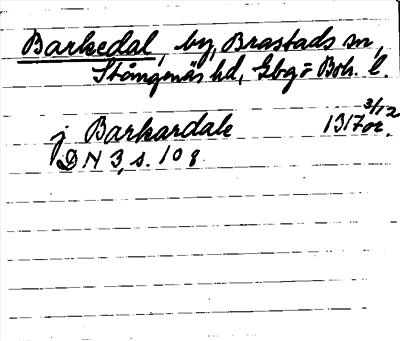 Barkedal, by, Brastads sn,
Stångenäs hd, Gbg o Boh. l.
j Barkardale 1317 3/12 or.
DN 3, s. 108